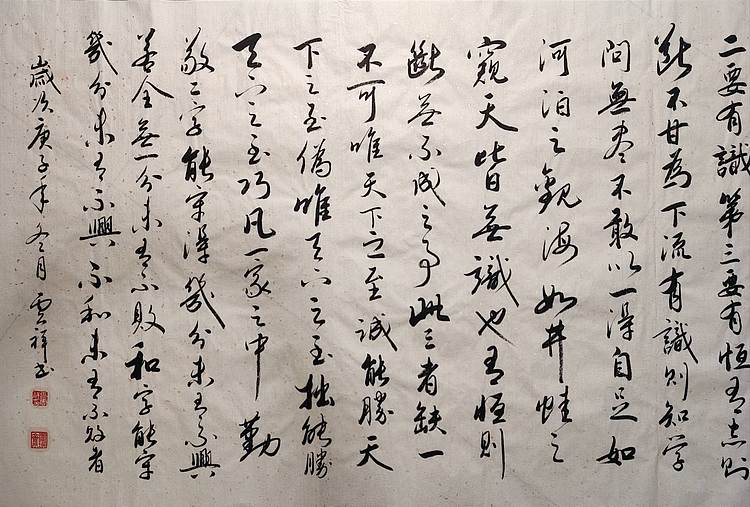 二要有識第三要有恒有志則
斷不甘為下流有識則知学
問無盡不敢以一得自足如
河泊之觀海如井蛙之
窺天皆無識也有恒則
斷無不成之事此三者缺一
不可唯天下之至誠能勝天
下之至僞唯天下之至拙能勝
天下之至巧凡一家之中勤
敬二字能守得幾分未有不興
若全無一分未有不敗和字能守
幾分未有不興不和未有不敗者
歲次庚子年冬月雲祥书